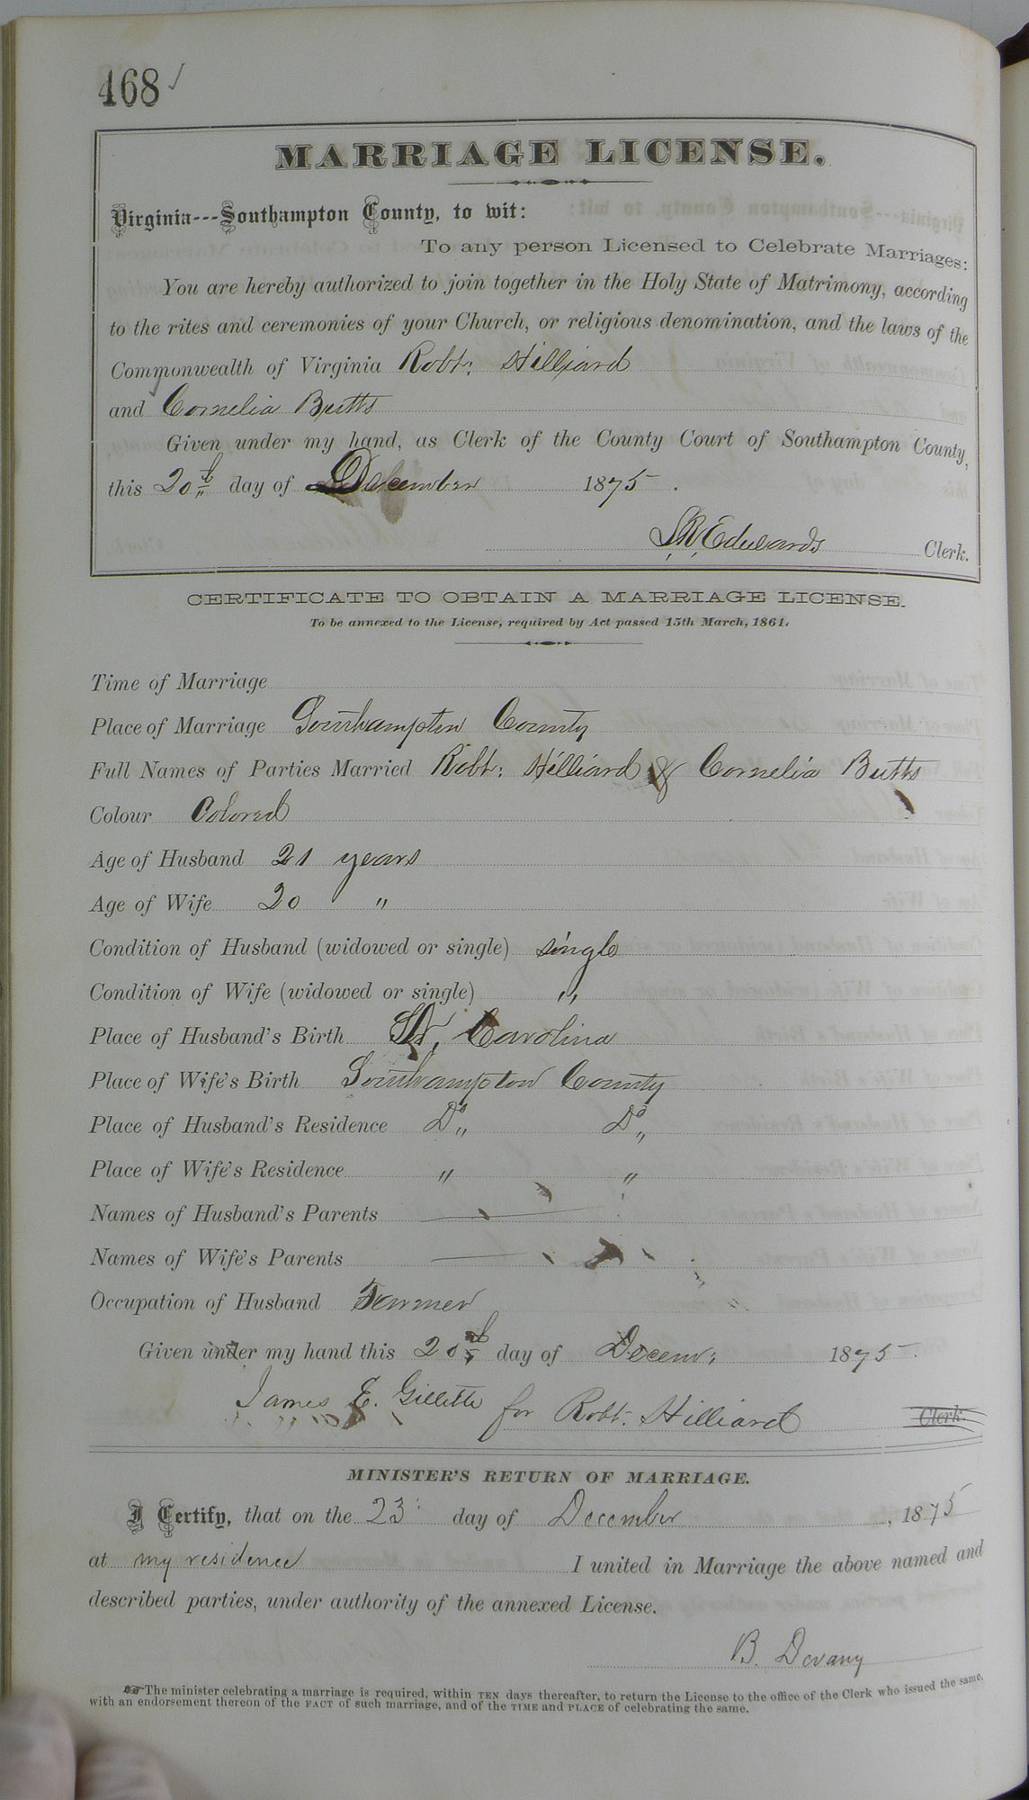 468
MARRIAGE LICENSE.
Virginia---Southampton County, to wit:
To any person Licensed to Celebrate Marriages:
You are hereby authorized to join together in the Holy State of Matrimony, according
to the rites and ceremonies of your Church, or religious denomination, and the laws of the
Commonwealth of Virginia Robt: Hilliard
and Cornelia Butts
Given under my hand, as Clerk of the County Court of Southampton County,
this 20th day of December 1875.
Edwards Clerk.
CERTIFICATE TO OBTAIN A MARRIAGE LICENSE.
To be annexed to the License, required by Act passed 15th March, 1861.
Time of Marriage
Place of Marriage Southampton County
Full Names of Parties Married Robt: Hilliard & Cornelia Butts
Colour Colored
Age of Husband 21 years
Age of Wife 20 "
Condition of Husband (widowed or single) single
Condition of Wife (widowed or single) "
Place of Husband's Birth Carolina
Place of Wife's Birth Southampton County
Place of Husband's Residence Do Do
Place of Wife's Residence " "
Names of Husband's Parents
Names of Wife's Parents
Occupation of Husband Farmer
Given under my hand this 20th day of Decem: 1875.
James E. Gillette for Robt. Hilliard Clerk.
MINISTER'S RETURN OF MARRIAGE.
I Certify, that on the 23 day of December, 1875
at my residence I united in Marriage the above named and
described parties, under authority of the annexed License.
B. Devany
The minister celebrating a marriage is required, within TEN days thereafter, to return the License to the office of the Clerk who issued the same,
with an endorsement thereon of the FACT of such marriage, and of the TIME and PLACE of celebrating the same.